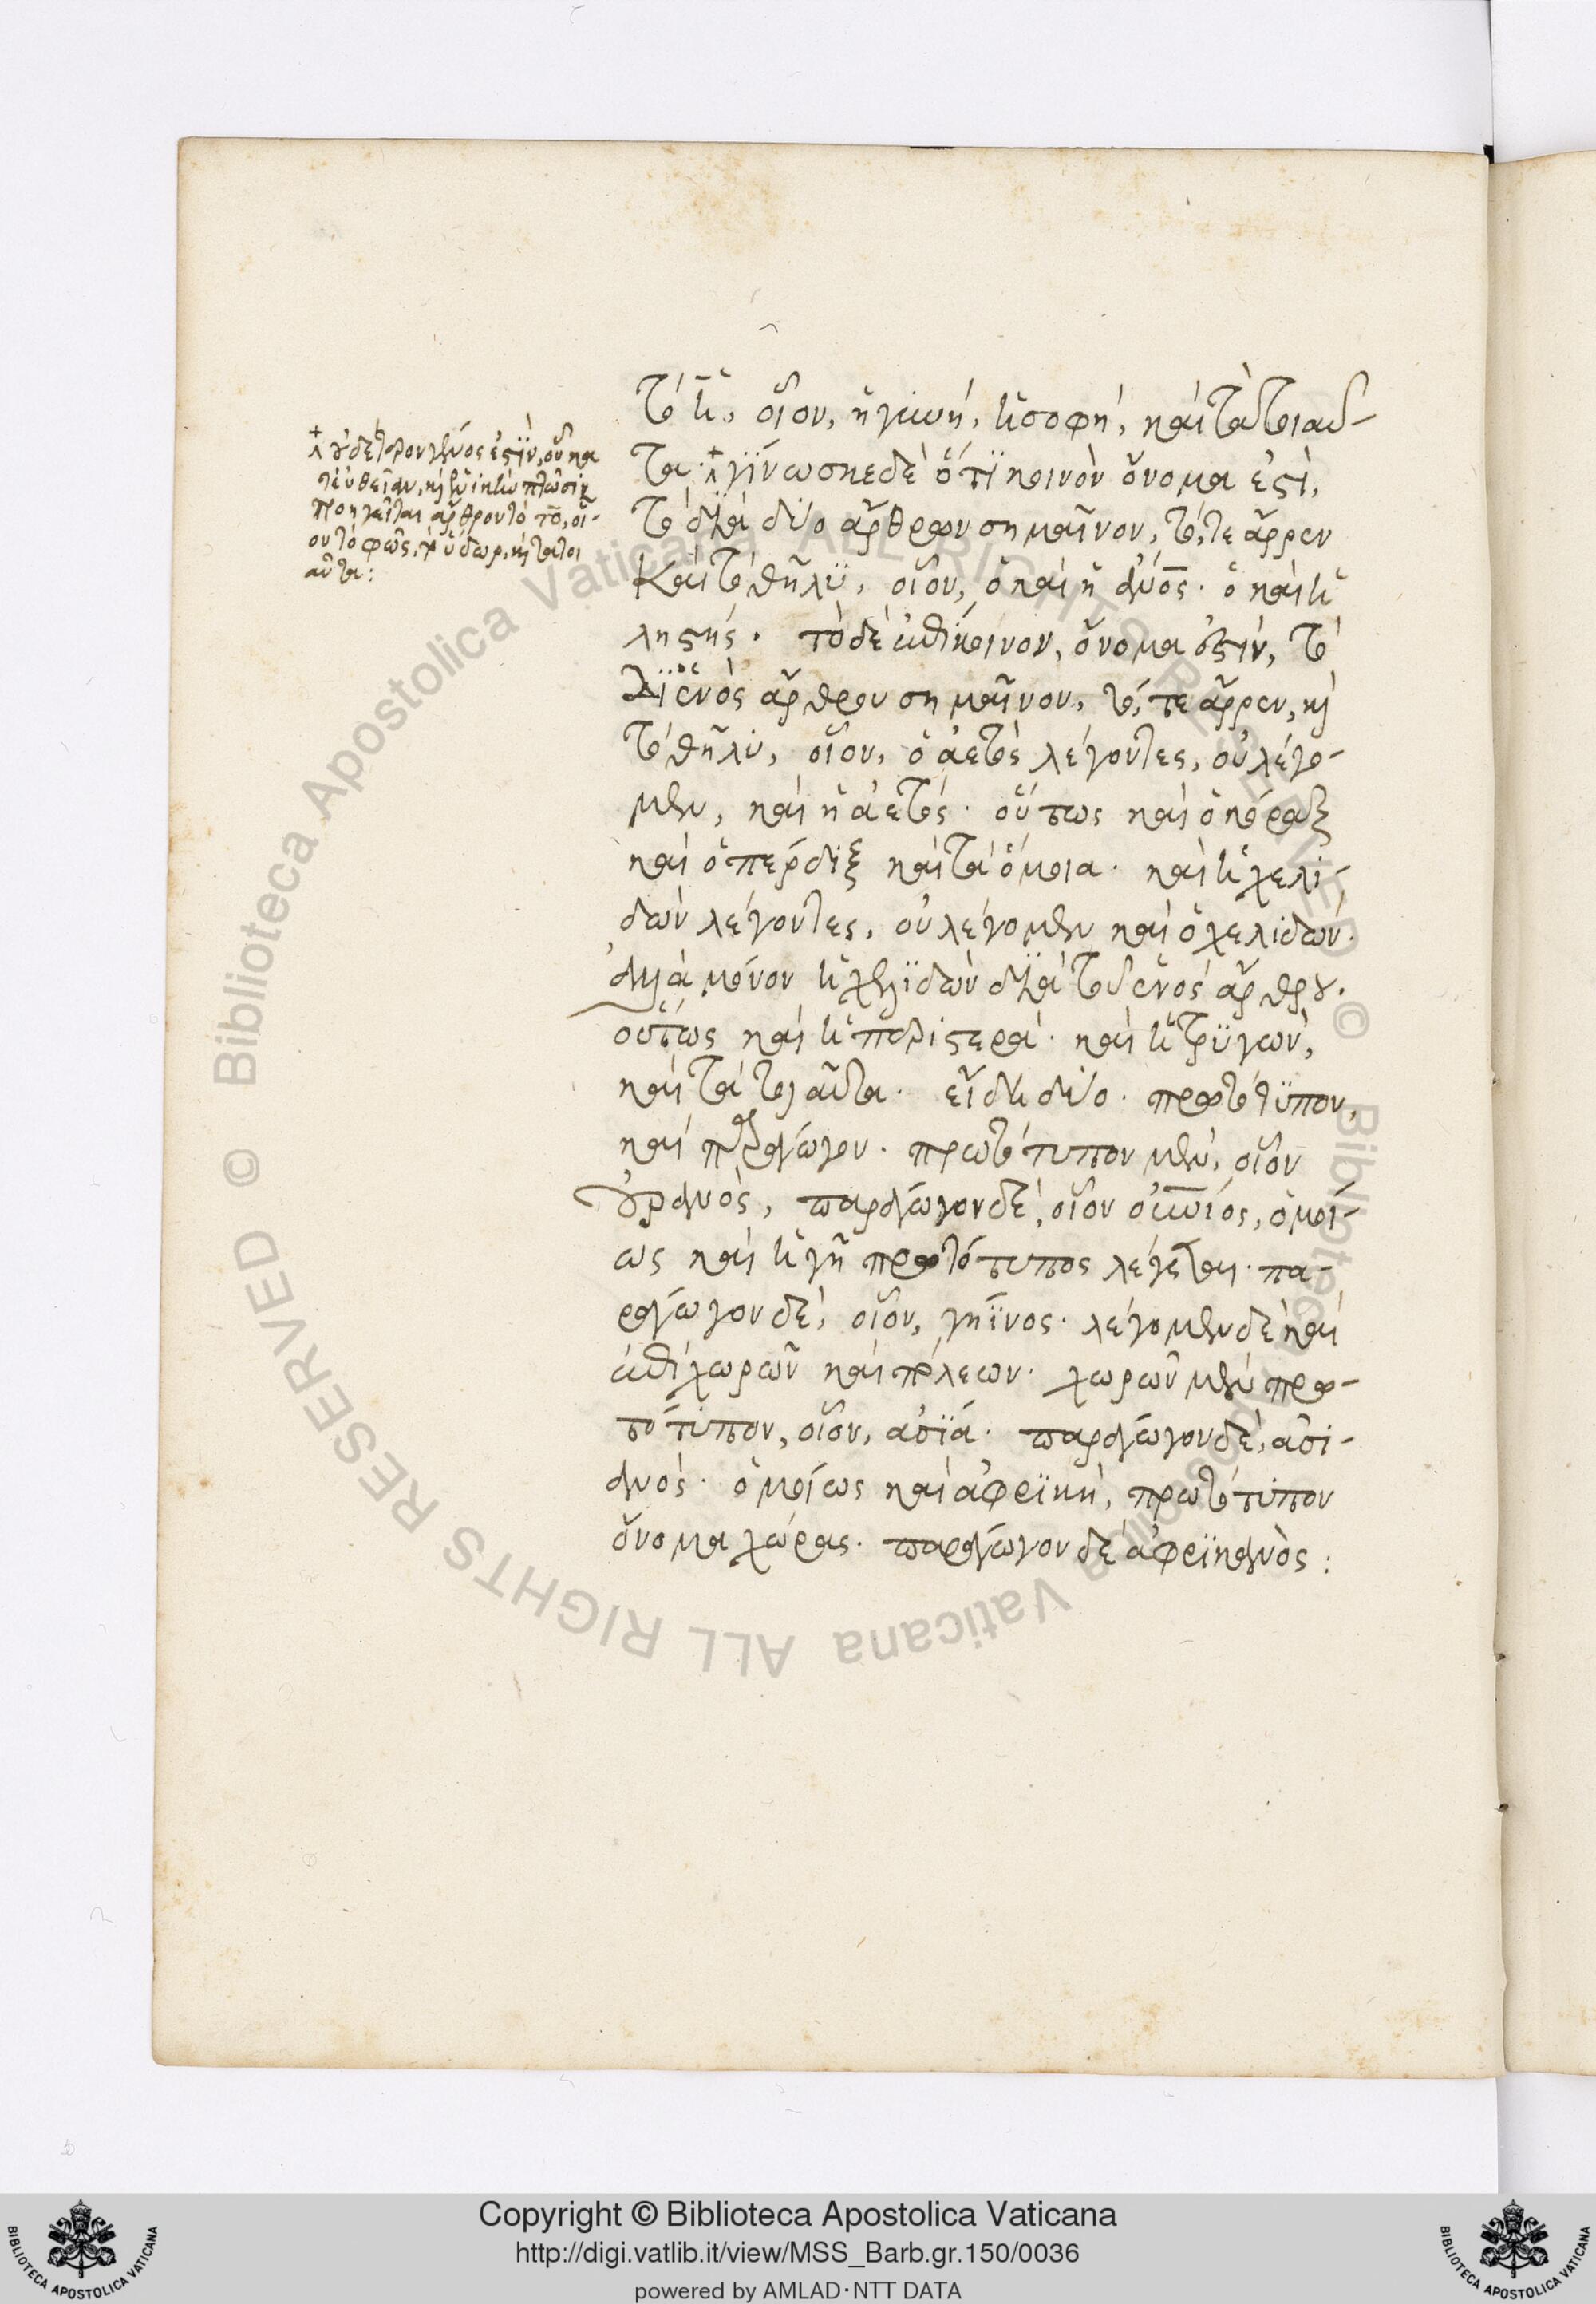 τὸ ἡ, οἷον, ἡ γυνή, ἡ σοφή, καὶ τὰ τοιαῦ-
τα· γίνωσκε δὲ ὅτι κοινὸν ὄνομα ἐστὶ,
τὸ διὰ δύο ἄρθρων σημαῖνον, τό, τε ἄρρεν
Καὶ τὸ θῆλϋ, οἷον, ὁ καὶ ἡ ἄνος· ὁ καὶ ἡ
ληστής· τὸ δὲ ἐπίκοινον, ὄνομα ἐστιν, τὸ
δι ἑνὸς ἄρθρου σημαῖνον, τό, τε ἄρρεν, καὶ
τὸ θῆλυ, οἷον, ὁ ἀετὸς λέγοντες, οὐ λέγο-
μεν, καὶ ἡ ἀετός· οὕτως καὶ ὁ κόραξ
καὶ ὁ πέρδιξ καὶ τὰ ὅμοια· καὶ ἡ χελι-
δὼν λέγοντες, οὐ λέγομεν καὶ ὁ χελιδών·
ἀλλὰ μόνον ἡ χελϊδὼν διὰ τοῦ ἑνὸς ἄρθρου·
οὕτως καὶ ἡ περιστερά· καὶ ἡ τρϋγών,
καὶ τὰ τοιαῦτα· εἴδη δύο· πρωτότϋπον,
καὶ παράγωγον· πρωτότυπον μὲν, οἷον
οὐρανὸς, παράγωγον δὲ, οἷον οὐνιός, ὁμοί-
ως καὶ ἡ γῆ πρωτότυπος λέγεται· πα-
ράγωγον δὲ, οἷον, γήϊνος· λέγομεν δὲ καὶ
ἐπὶ χωρῶν καὶ πόλεων· χωρῶν μὲν πρω-
τότυπον, οἷον, ἀσϊά· παράγωγον δὲ, ἀσι-
ανός· ὁμοίως καὶ ἀφρϊκή, πρωτότυπον
ὄνομα χώρας· παράγωγον δὲ ἀφρϊκανὸς:
οὐδέτερον γένος ἐστὶν, οὗ κα
τ' εὐθεῖαν, καὶ ἑνϊκὴν πτῶσιν
προηγεῖται ἄρθρον τὸ το, οἷ-
ον τὸ φῶς, τὸ ὕδωρ, καὶ τὰ τοι
αῦτα:
Copyright © Biblioteca Apostolica Vaticana
http://digi.vatlib.it/view/MSS_Barb.gr.150/0036
powered by AMLAD·NTT DATA
BIBLIOTECA APOSTOLICA VATICANA
BIBLIOTECA APOSTOLICA VATICANA
© Biblioteca Apostolica Vaticana ALL RIGHTS RESERVED
© Biblioteca Apostolica Vaticana ALL RIGHTS RESERVED